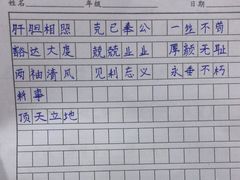 姓名 年级 日期
肝胆相照 克己奉公 一丝不苟
豁达大度 兢兢业业 厚颜无耻
两袖清风 见利忘义 永垂不朽
轶事
顶天立地